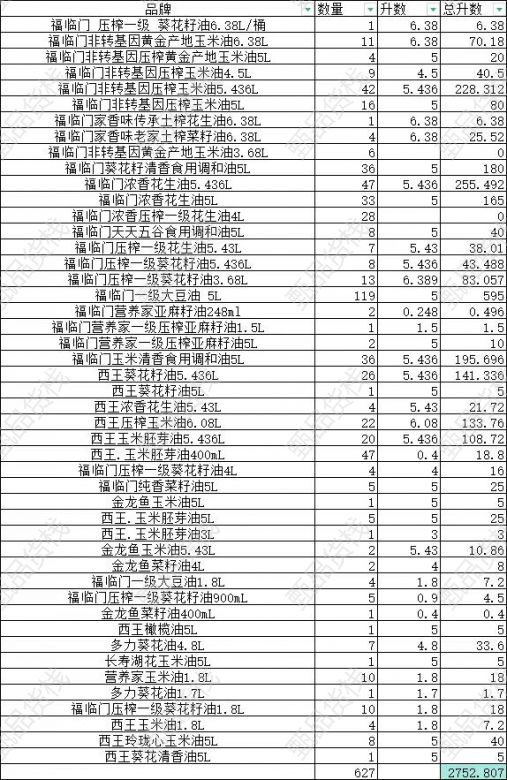 品牌 数量 升数 总升数
福临门 压榨一级 葵花籽油6.38L/桶 1 6.38 6.38
福临门非转基因黄金产地玉米油6.38L 11 6.38 70.18
福临门非转基因压榨黄金产地玉米油5L 4 5 20
福临门非转基因压榨玉米油4.5L 9 4.5 40.5
福临门非转基因压榨玉米油5.436L 42 5.436 228.312
福临门非转基因压榨玉米油5L 16 5 80
福临门家香味传承土榨花生油6.38L 1 6.38 6.38
福临门家香味老家土榨菜籽油6.38L 4 6.38 25.52
福临门非转基因黄金产地玉米油3.68L 6 0
福临门葵花籽清香食用调和油5L 36 5 180
福临门浓香花生油5.436L 47 5.436 255.492
福临门浓香花生油5L 33 5 165
福临门浓香压榨一级花生油4L 28 0
福临门天天五谷食用调和油5L 8 5 40
福临门压榨一级花生油5.43L 7 5.43 38.01
福临门压榨一级葵花籽油5.436L 8 5.436 43.488
福临门压榨一级葵花籽油3.68L 13 6.389 83.057
福临门一级大豆油 5L 119 5 595
福临门营养家亚麻籽油248ml 2 0.248 0.496
福临门营养家一级压榨亚麻籽油1.5L 1 1.5 1.5
福临门营养家一级压榨亚麻籽油5L 2 5 10
福临门玉米清香食用调和油5L 36 5.436 195.696
西王葵花籽油5.436L 26 5.436 141.336
西王葵花籽油5L 1 5 5
西王浓香花生油5.43L 4 5.43 21.72
西王压榨玉米油6.08L 22 6.08 133.76
西王玉米胚芽油5.436L 20 5.436 108.72
西王.玉米胚芽油400mL 47 0.4 18.8
福临门压榨一级葵花籽油4L 4 4 16
福临门纯香菜籽油5L 5 5 25
金龙鱼玉米油5L 1 5 5
西王.玉米胚芽油5L 5 5 25
西王.玉米胚芽油3L 1 3 3
金龙鱼玉米油5.43L 2 5.43 10.86
金龙鱼菜籽油4L 2 4 8
福临门一级大豆油1.8L 4 1.8 7.2
福临门压榨一级葵花籽油900mL 5 0.9 4.5
金龙鱼菜籽油400mL 1 0.4 0.4
西王橄榄油5L 1 5 5
多力葵花油4.8L 7 4.8 33.6
长寿湖花玉米油5L 1 5 5
营养家玉米油1.8L 10 1.8 18
多力葵花油1.7L 1 1.7 1.7
福临门压榨一级葵花籽油1.8L 10 1.8 18
西王玉米油1.8L 4 1.8 7.2
西王玲珑心玉米油5L 8 5 40
西王葵花清香油5L 1 5 5
627 2752.807